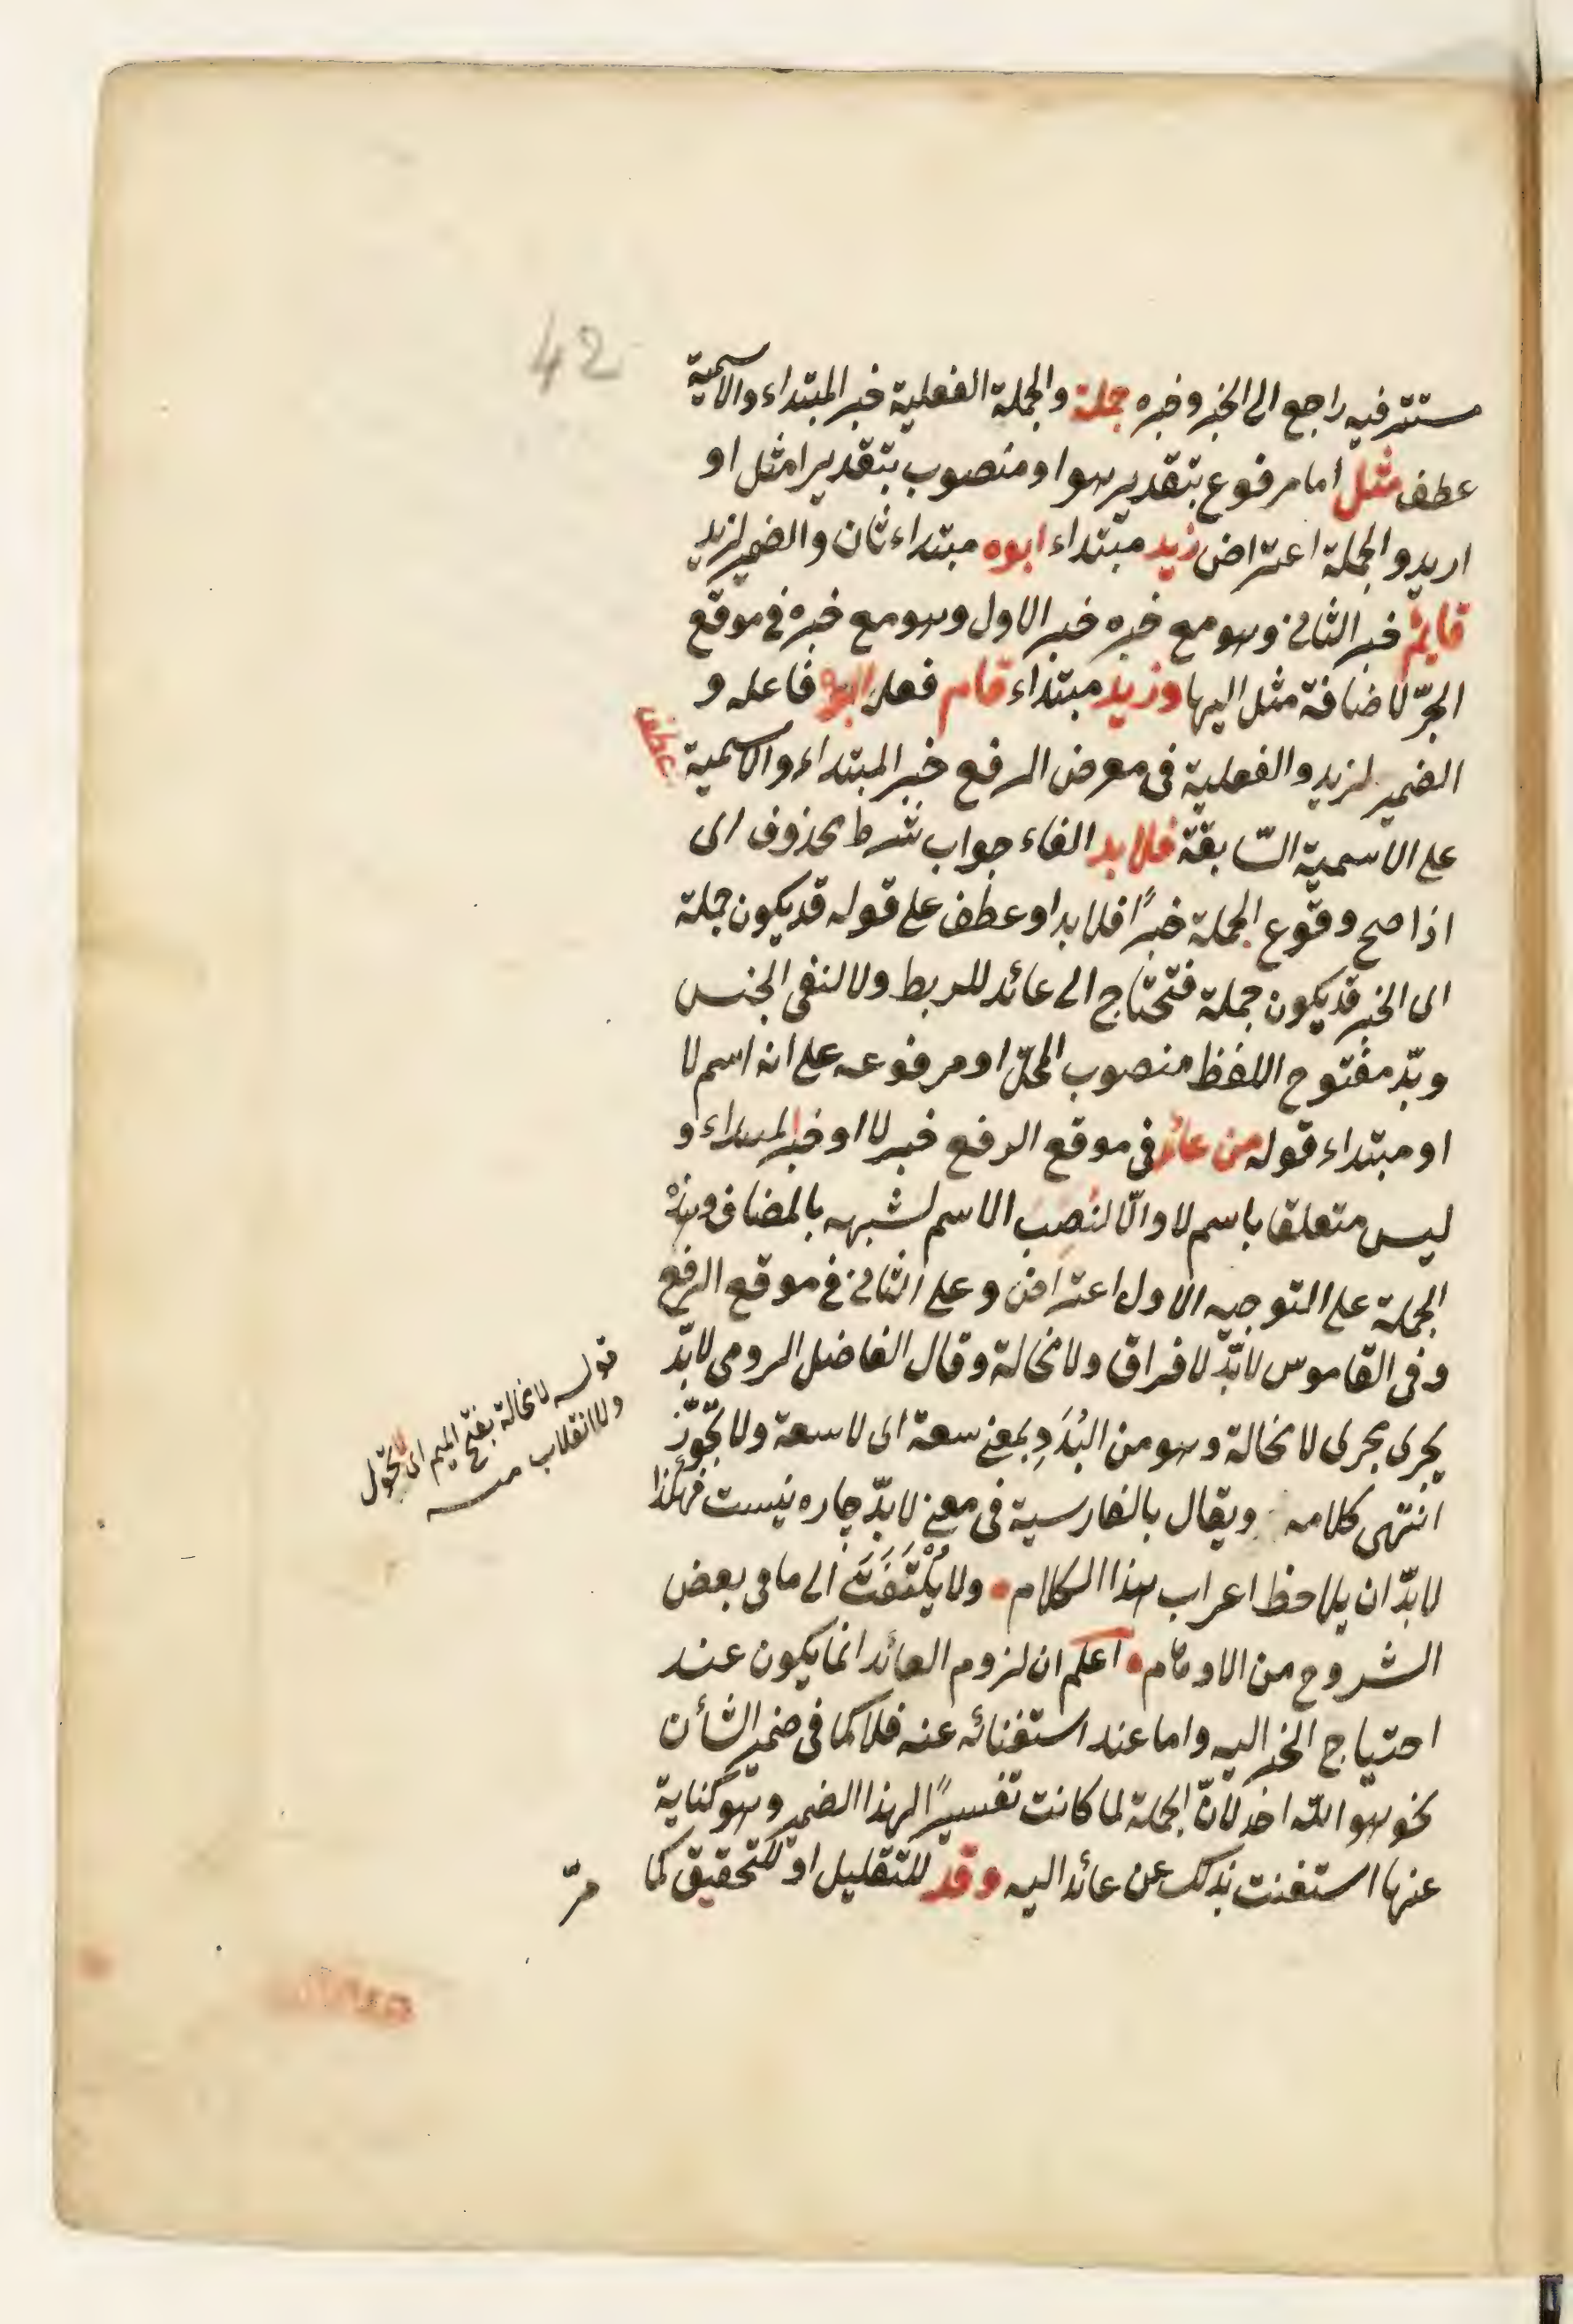 42
مستتر فيه راجع الى الخبر وخبره جملة والجملة الفعلية خبر المبتداء والاسمية
عطف مثل اما مرفوع بتقدير هو او منصوب بتقدير امثل او
اريد والجملة اعتراض زيد مبتداء ابوه مبتداء ثان والضمير لزيد
قايم خبر الثانى وهو مع خبره خبر الاول وهو مع خبره فى موقع
الجرّ لاضافة مثل اليها وزيد مبتداء قام فعل ابوه فاعله و
الضمير لزيد والفعلية فى معرض الرفع خبر المبتداء والاسمية عطف
على الاسمية السّابقة فلا بد الفاء جواب شرط محذوف اى
اذا صح وقوع الجملة خبرًا فلا بد او عطف على قوله قد يكون جملة
اى الخبر قد يكون جملة فتحتاج الى عائد للربط ولا لنفى الجنس
وبدّ مفتوح اللفظ منصوب المحلّ او مرفوعه على انه اسم لا
او مبتداء قوله من عائد فى موقع الرفع خبر لا او خبر المبتداء و
ليس متعلقا باسم لا والّا لنصب الاسم لشبهه بالمضاف وهذه
الجملة على التوجيه الاول اعتراض وعلى الثانى فى موقع الرفع
وفى القاموس لا بدّ لا فراق ولا محالة وقال الفاضل الرومى لا بدّ
يجرى مجرى لا محالة وهو من البُدَدِ بمعنى سعة اى لا سعة ولا تجوّز
انتهى كلامه ويقال بالفارسية فى معنى لا بدّ چاره نيست فهكذا
لا بدّ ان يلاحظ اعراب هذا الكلام ولا يُلْتَفَتَ الى ما فى بعض
الشروح من الاوهام اعلم ان لزوم العائد انما يكون عند
احتياج الخبر اليه واما عند استغنائه عنه فلا كما فى ضمير الشأن
نحو هو الله احد لانّ الجملة لما كانت تفسيرًا لهذا الضمير وهو كناية
عنها استغنت بذلك عن عائد اليه وقد للتقليل او للتحقيق كما
مرّ
قوله لا محالة بفتح الميم اى لا تحوّل
ولا انقلاب منه